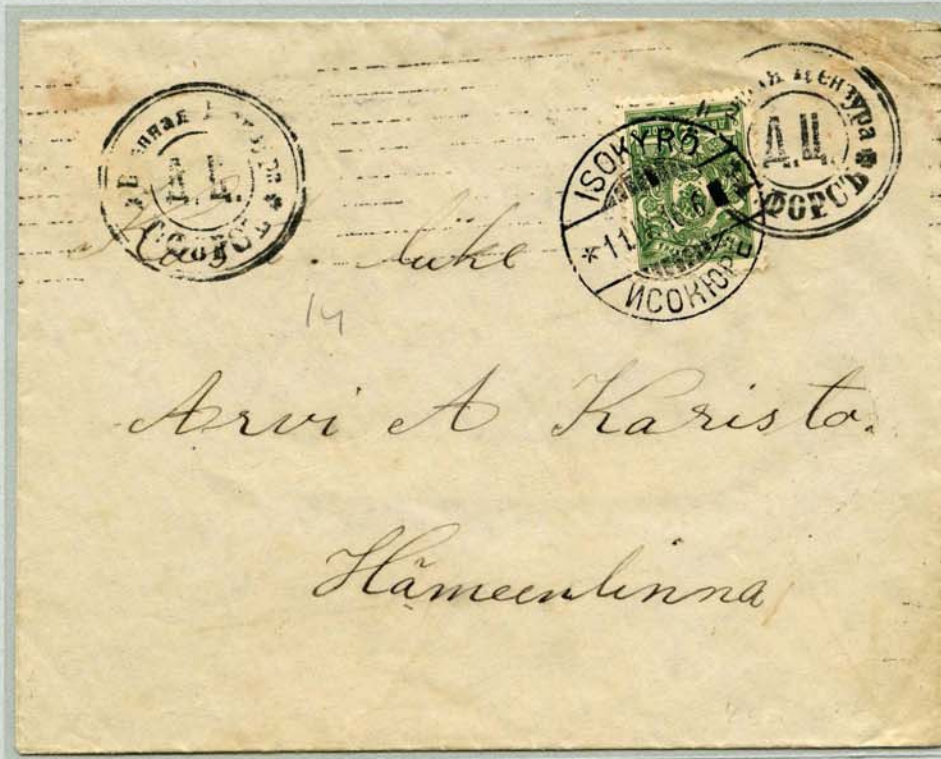 Военная Цензура
Д.Ц.
ФОРСЪ
цензура
Д.Ц.
ФОРСЪ
ISOKYRÖ
*11.
ИСОКЮРЕ
14
Arvi A Karisto.
Hämeenlinna